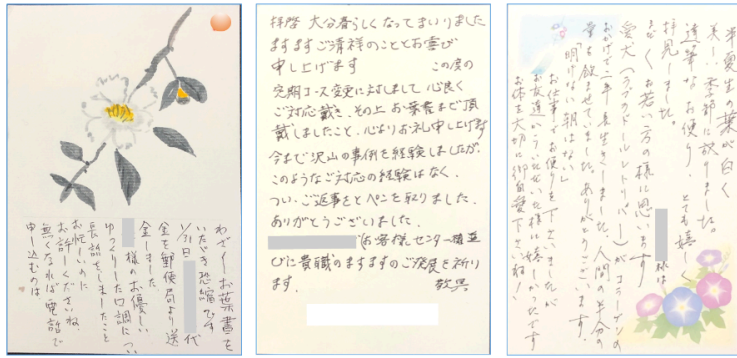 わざわざお葉書を
いただき恐縮です
1/31日 代
金を郵便局より送
金しました
様のお優しい
ゆっくりした口調につい
長話をしましたこと
お忙しいのに
お許しくださいね
無くなれば電話で
申し込むのは
拝啓 大分春らしくなってまいりました
ますますご清祥のこととお喜び
申し上げます この度の
定期コース変更に対しまして心良く
ご対応戴き、その上お葉書まで頂
戴しましたこと、心よりお礼申し上げます
今まで沢山の事例を経験しましたが、
このようなご対応の経験はなく、
つい、ご返事をとペンを取りました。
ありがとうございました。
(お客様センター 構築
びに貴職のますますのご発展を祈り
ます。 敬具
半夏生の葉が白く
美しい季節に成りました。
達筆なお便り、とても嬉しく
拝見しました。 様は
まだまだお若い方の様に思います
愛犬(ラブラドールレトリバー)がコラーゲンの
おかげで二年長生きしました。人間の半分の
量を飲ませていました。ありがとうございます。
「明けない朝はない」
お仕事でお便りを下さいましたが
お友達からいただいた様に嬉しかったです
お体を大切に御自愛下さいね!